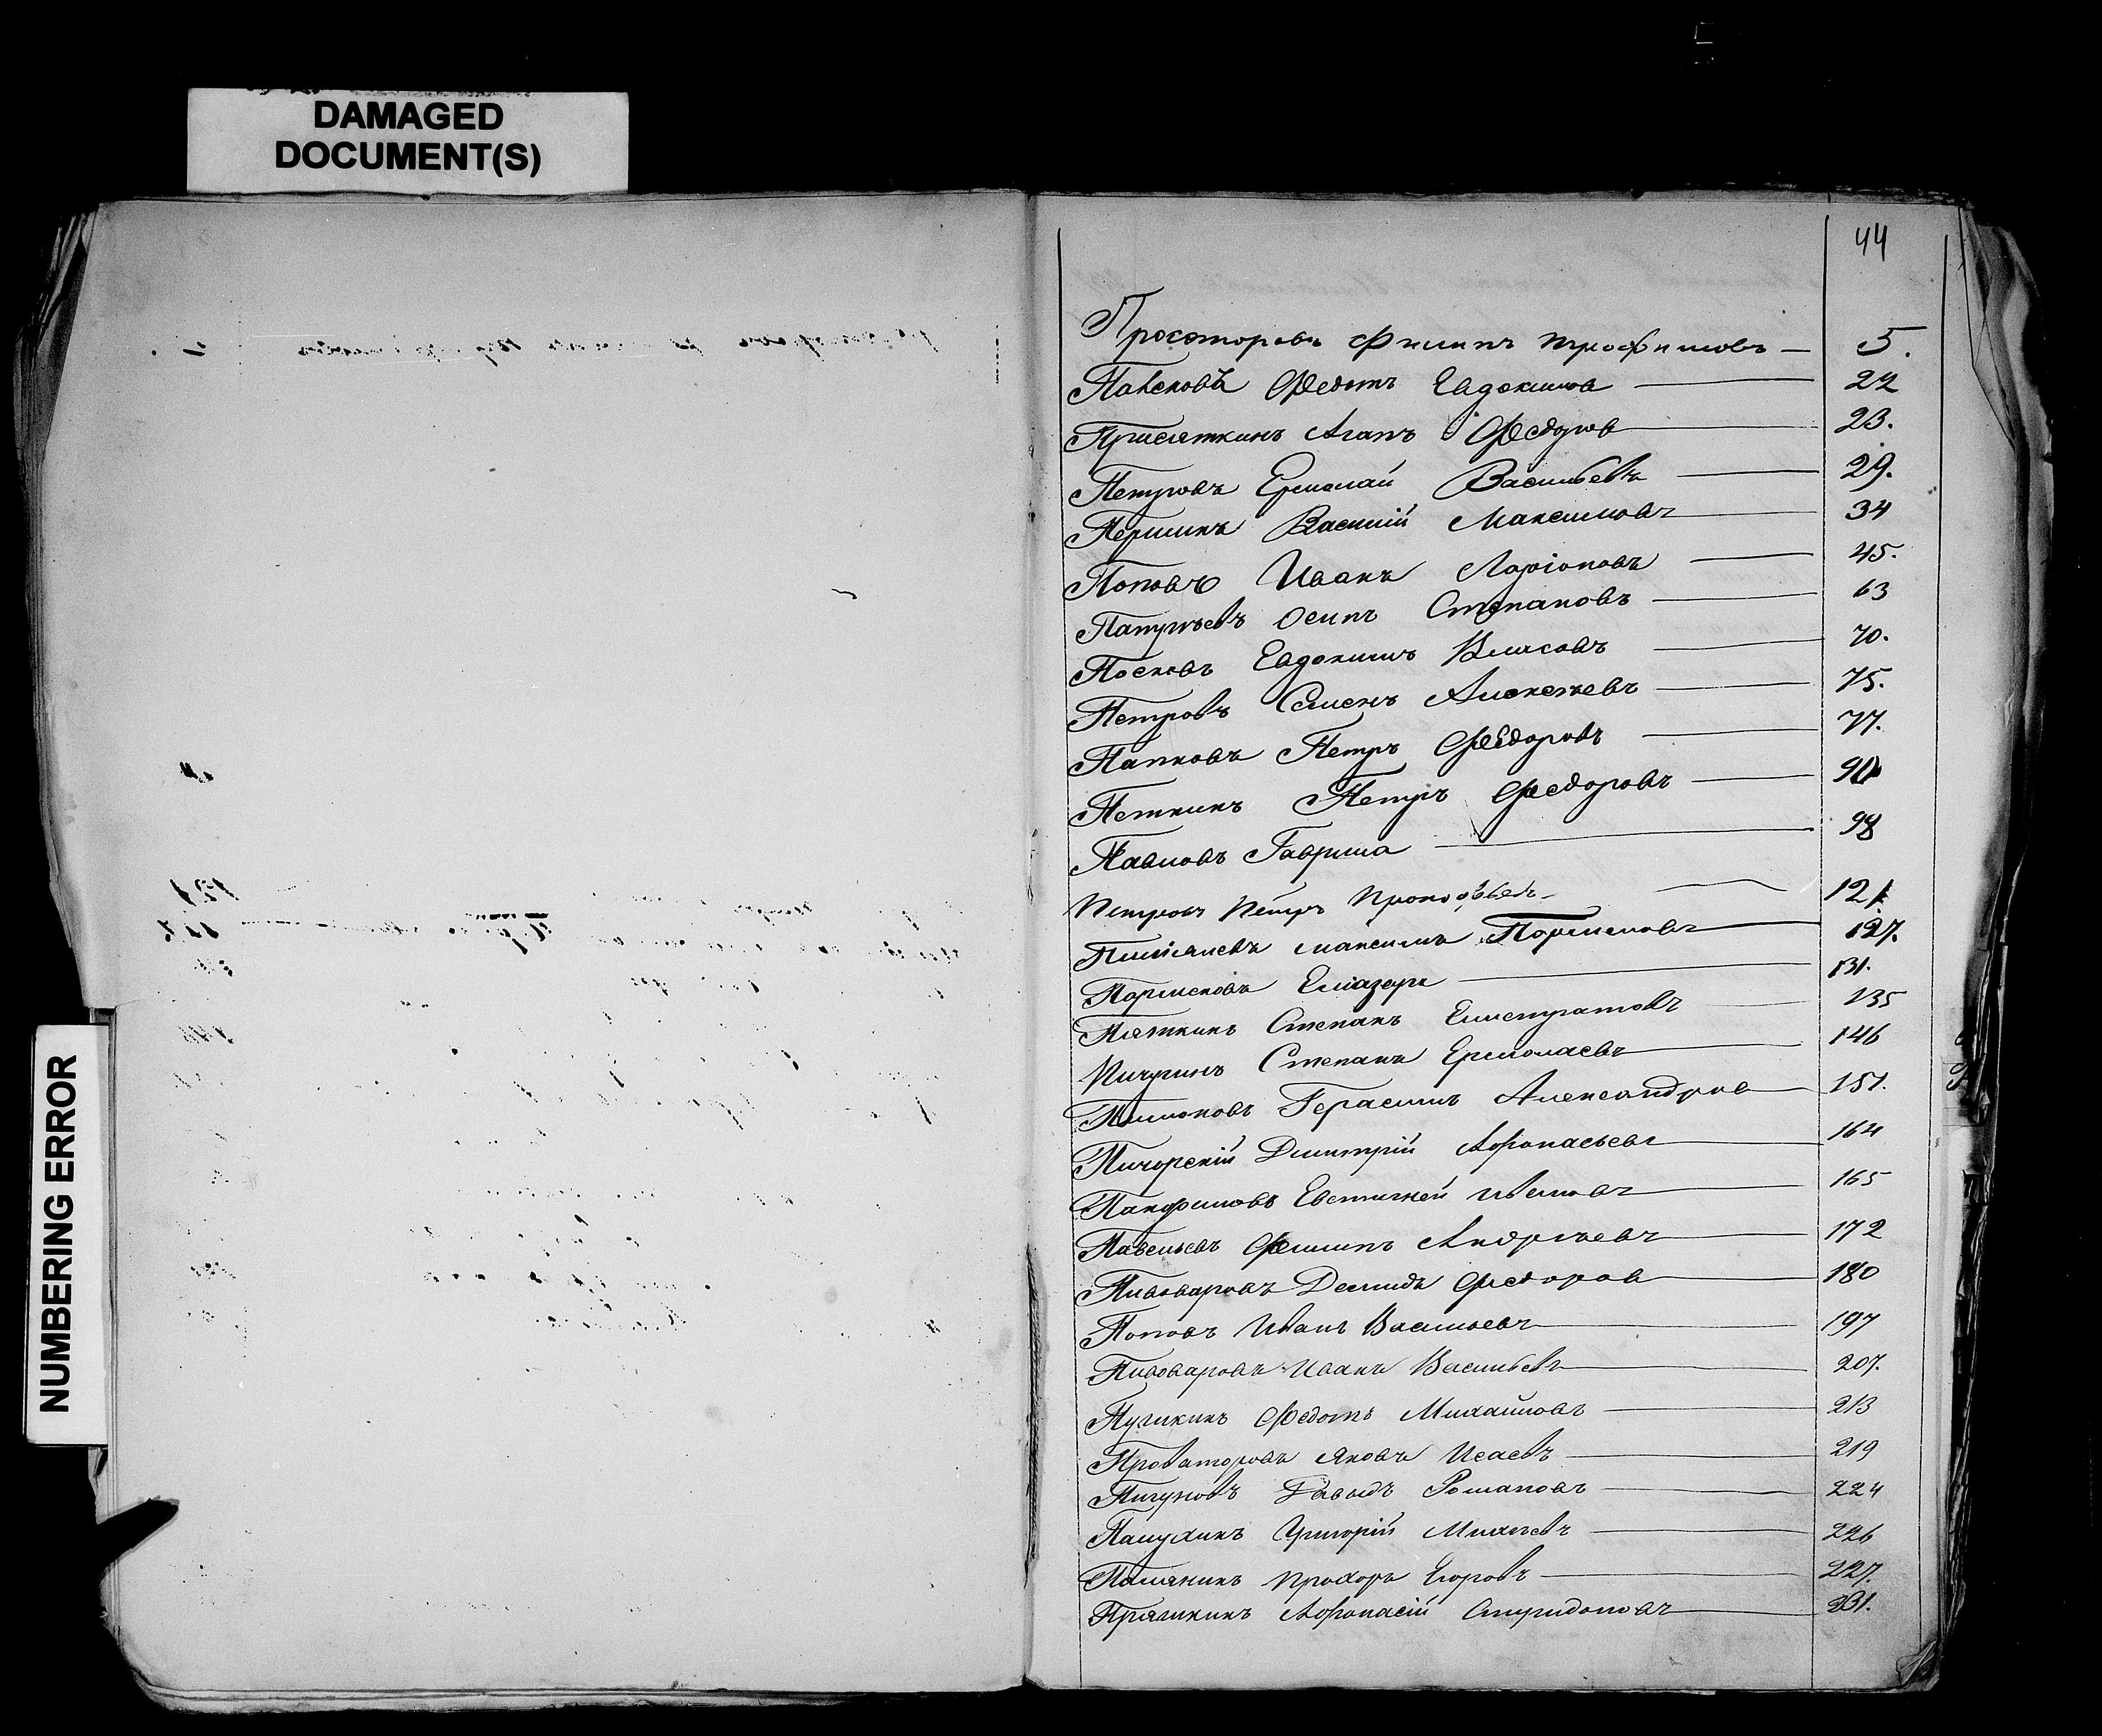 DAMAGED
DOCUMENT(S)
NUMBERING ERROR
44
Просоторовъ Филипъ Трофимовъ — 5.
Федотъ Евдокимов — 22
Агапъ Федоров — 23.
Петровъ Ермолай Васильевъ — 29.
Першинъ Василій Максимовъ — 34
Поповъ Иванъ Ларіоновъ — 45.
Осипъ Степановъ — 63
Посковъ Евдокимъ Власовъ — 70.
Петровъ Семенъ Алексеевъ — 75.
Папковъ Петръ Федоровъ — 77.
Петкинъ Петръ Федоровъ — 90
Павловъ Гаврила — 98
Петровъ Петръ — 121
Максимъ Парменовъ — 127.
Парменовъ Елизаръ — 131.
Пяткинъ Степанъ Елистратовъ — 135
Пичугинъ Степанъ Ермолаевъ — 146
Герасимъ Александров — 151.
Пичорскій Дмитрій Афонасьевъ — 164
Панфиловъ Евстигней — 165
Савельевъ Филипъ Андреевъ — 172
Пивоваровъ Демидъ Федоров — 180
Поповъ Иванъ Васильевъ — 197
Пивоваровъ Иванъ Васильевъ — 207.
Пушкинъ Федотъ Михайловъ — 213
Проваторовъ Яковъ Исаевъ — 219
Пигуновъ Давыдъ Романовъ — 224
Григорій Михеевъ — 226
Прохоръ Егоровъ — 227.
Пряшкинъ Афонасій Спиридоновъ — 231.